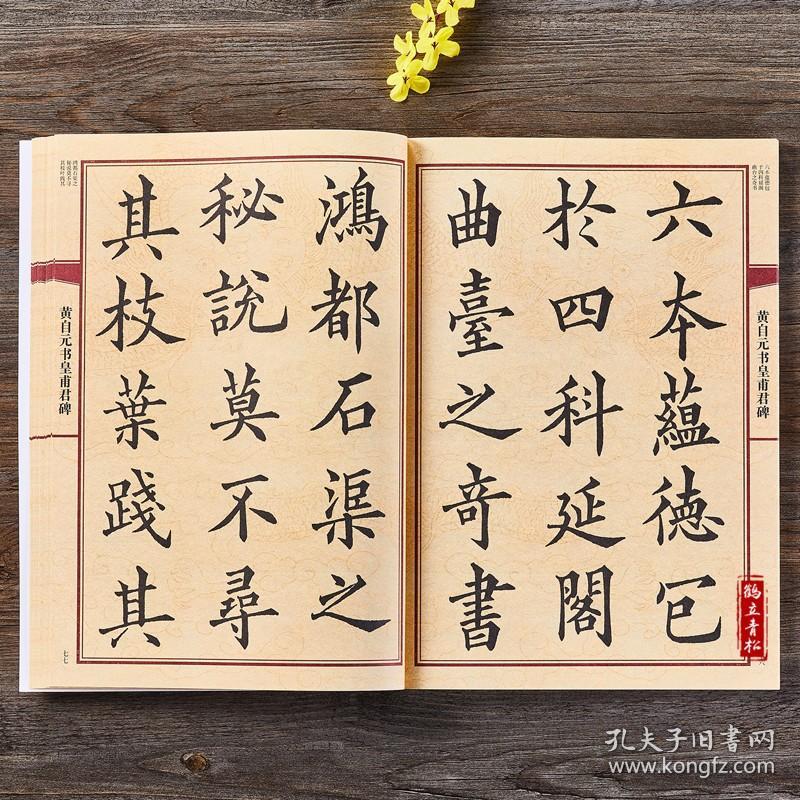 六本蘊德包
於四科延閣
曲臺之奇書
鴻都石渠之
秘說莫不尋
其枝葉踐其
六本蕴德包
于四科延阁
曲台之奇书
鸿都石渠之
秘说莫不寻
其枝叶践其
黄自元书皇甫君碑
黄自元书皇甫君碑
七七
鹤立青松
孔夫子旧书网
www.kongfz.com